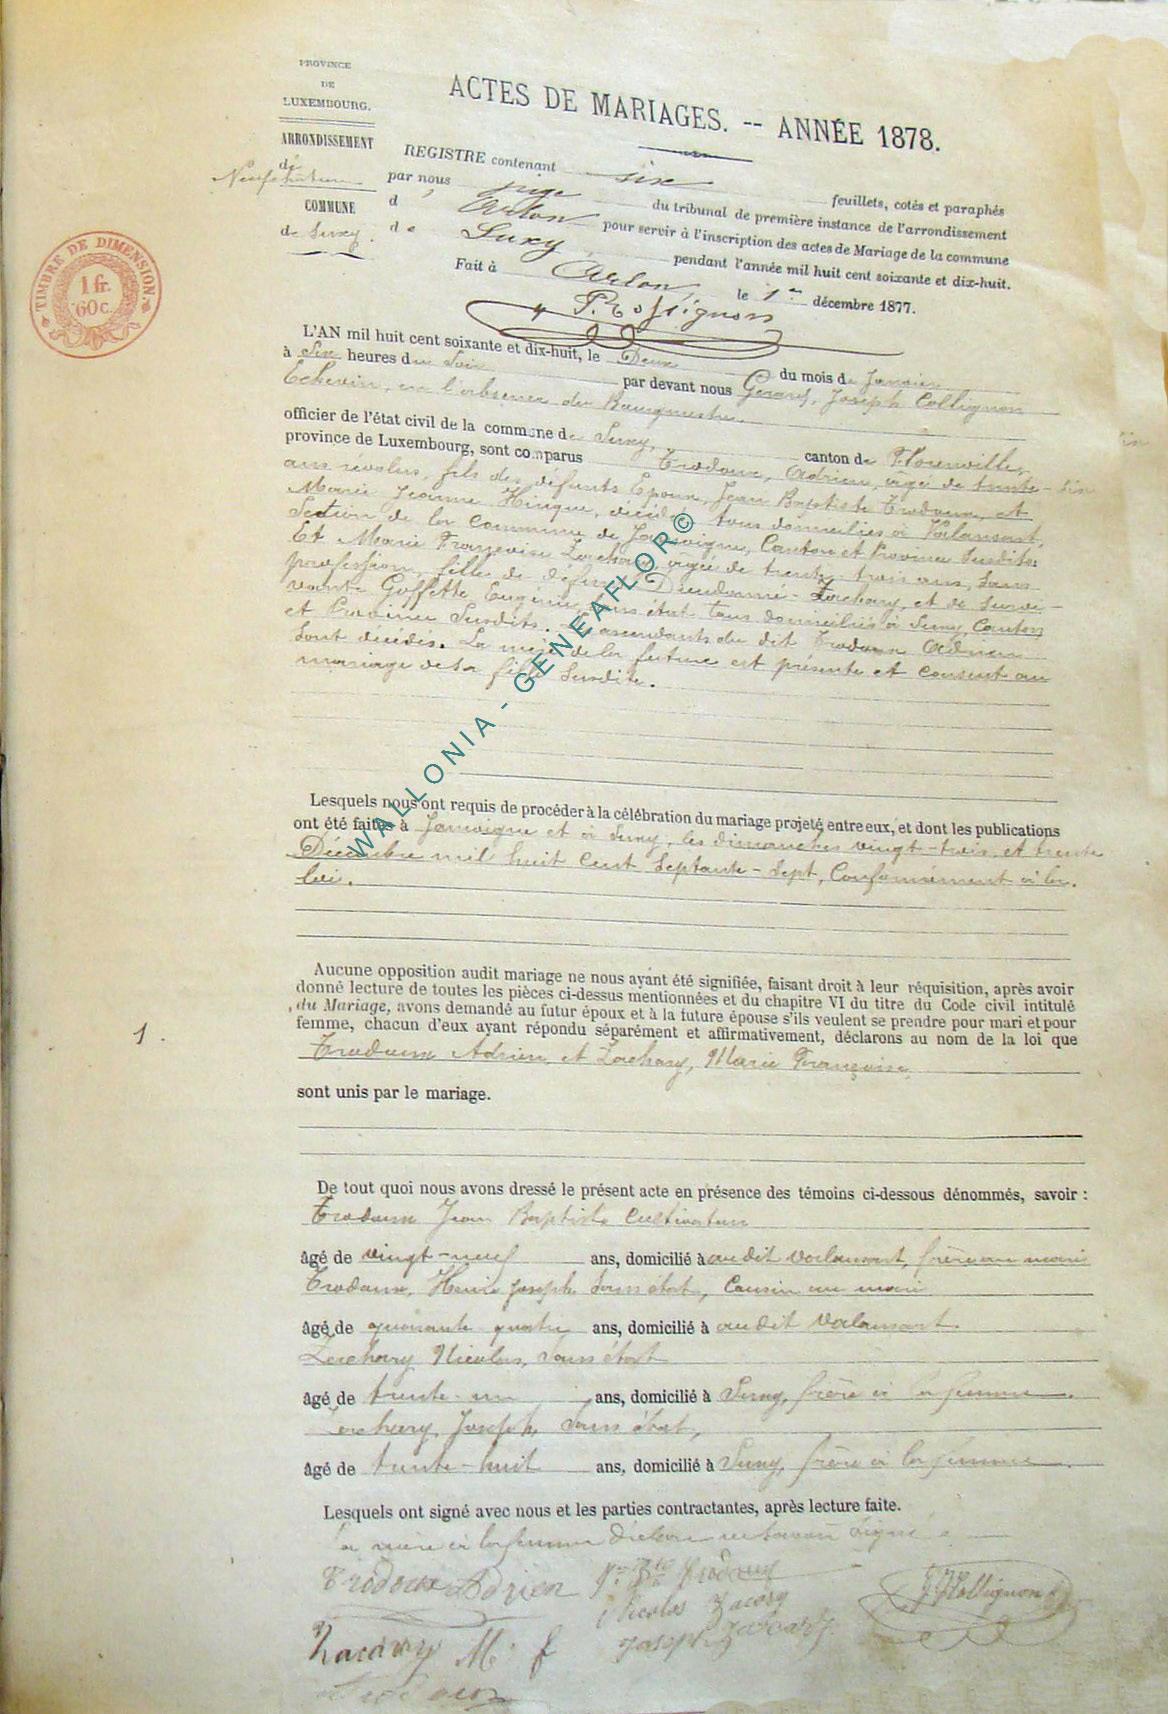 PROVINCE
DE
LUXEMBOURG.
ARRONDISSEMENT
de
Neufchâteau
COMMUNE
de Suxy.
TIMBRE DE DIMENSION.
1 fr.
60 c.
ACTES DE MARIAGES. -- ANNÉE 1878.
REGISTRE contenant six feuillets, cotés et paraphés
par nous juge du tribunal de première instance de l'arrondissement
d' Arlon pour servir à l'inscription des actes de Mariage de la commune
de Suxy pendant l'année mil huit cent soixante et dix-huit.
Fait à Arlon, le 1er décembre 1877.
P. Rossignon
L'AN mil huit cent soixante et dix-huit, le Deux du mois de Janvier
à Six heures du Soir par devant nous Gérard, Joseph Collignon
Echevin, en l'absence du Bourgmestre.
officier de l'état civil de la commune de Suxy, canton de Florenville,
province de Luxembourg, sont comparus Trodoux, Adrien, âgé de trente-six
ans révolus, fils des défunts Epoux, Jean Baptiste Trodoux, et
Marie Jeanne Hinque, décédés tous domiciliés à Valansart,
Section de la Commune de Jamoigne, Canton et Province Susdits.
Et Marie Françoise Zachary, âgée de trente-trois ans, Sans
profession, fille de défunt Dieudonné Zachary, et de Survi-
vante Goffette Eugénie, Sans état tous domiciliés à Suxy, Canton
et Province Susdits. Les ascendants du dit Trodoux Adrien
Sont décédés. La mère de la future est présente et consent au
mariage de sa fille Susdite.
Lesquels nous ont requis de procéder à la célébration du mariage projeté entre eux, et dont les publications
ont été faites à Jamoigne et à Suxy, les dimanches vingt-trois et trente
Décembre mil huit Cent Septante-Sept, Conformément à la
loi.
Aucune opposition audit mariage ne nous ayant été signifiée, faisant droit à leur réquisition, après avoir
donné lecture de toutes les pièces ci-dessus mentionnées et du chapitre VI du titre du Code civil intitulé
du Mariage, avons demandé au futur époux et à la future épouse s'ils veulent se prendre pour mari et pour
femme, chacun d'eux ayant répondu séparément et affirmativement, déclarons au nom de la loi que
1.
Trodoux Adrien et Zachary, Marie Françoise
sont unis par le mariage.
De tout quoi nous avons dressé le présent acte en présence des témoins ci-dessous dénommés, savoir :
Trodoux Jean Baptiste Cultivateur
âgé de vingt-neuf ans, domicilié à audit Valansart, frère au mari
Trodoux, Henri Joseph Sans état, Cousin au mari
âgé de quarante quatre ans, domicilié à audit Valansart.
Zachary Nicolas, Sans état
âgé de trente-un ans, domicilié à Suxy, frère à la femme.
Zachary, Joseph, Sans état,
âgé de trente-huit ans, domicilié à Suxy, frère à la femme
Lesquels ont signé avec nous et les parties contractantes, après lecture faite.
la mère à la femme déclare ne savoir Signé
Trodoux Adrien
Jn Bte Trodoux
Nicolas Zacary
GJCollignon
Zacary M. f
Joseph Zacary
Trodoux
WALLONIA - GENEAFLOR©